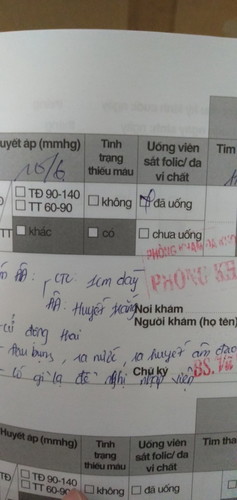 uyết áp (mmhg) Tình trạng thiếu máu Uống viên sắt folic/ đa vi chất Tim
10/6
TĐ 90-140 không đã uống
TT 60-90
TT khác có chưa uống
PHÒNG KH
CTC: 1cm dày
Huyết trắng Nơi khám
Người khám (họ tên)
có động thai
thu bụng, ra nước, ra huyết âm đạo
có gì lạ đề nghị nhập viện Chữ ký BS.
Huyết áp (mmhg) Tình trạng thiếu máu Uống viên sắt folic/ đa vi chất Tim tha
TĐ TĐ 90-140 không đã uống
TT 60-90